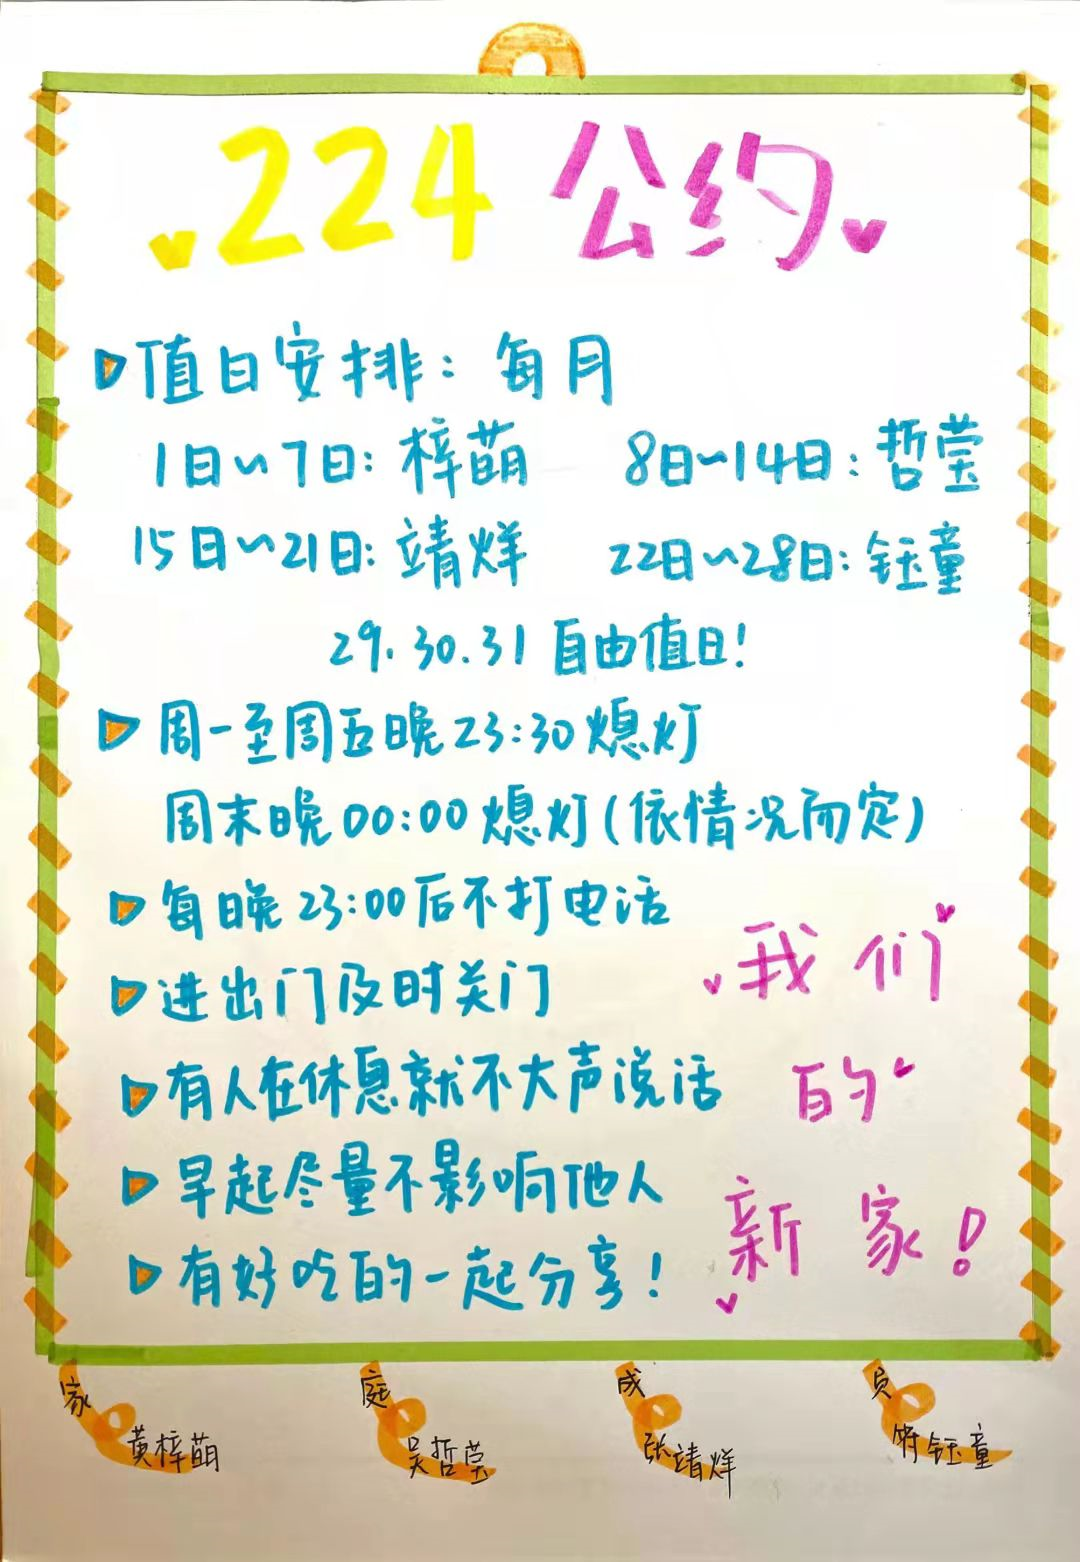 224 公约
值日安排：每月
1日~7日：梓萌 8日~14日：哲莹
15日~21日：靖烊 22日~28日：钰童
29.30.31 自由值日！
周一至周五晚23:30熄灯
周末晚00:00熄灯(依情况而定)
每晚23:00后不打电话
进出门及时关门
有人在休息就不大声说话
早起尽量不影响他人
有好吃的一起分享！
我们
的
新家！
家 庭 成 员
黄梓萌 吴哲莹 张靖烊 符钰童